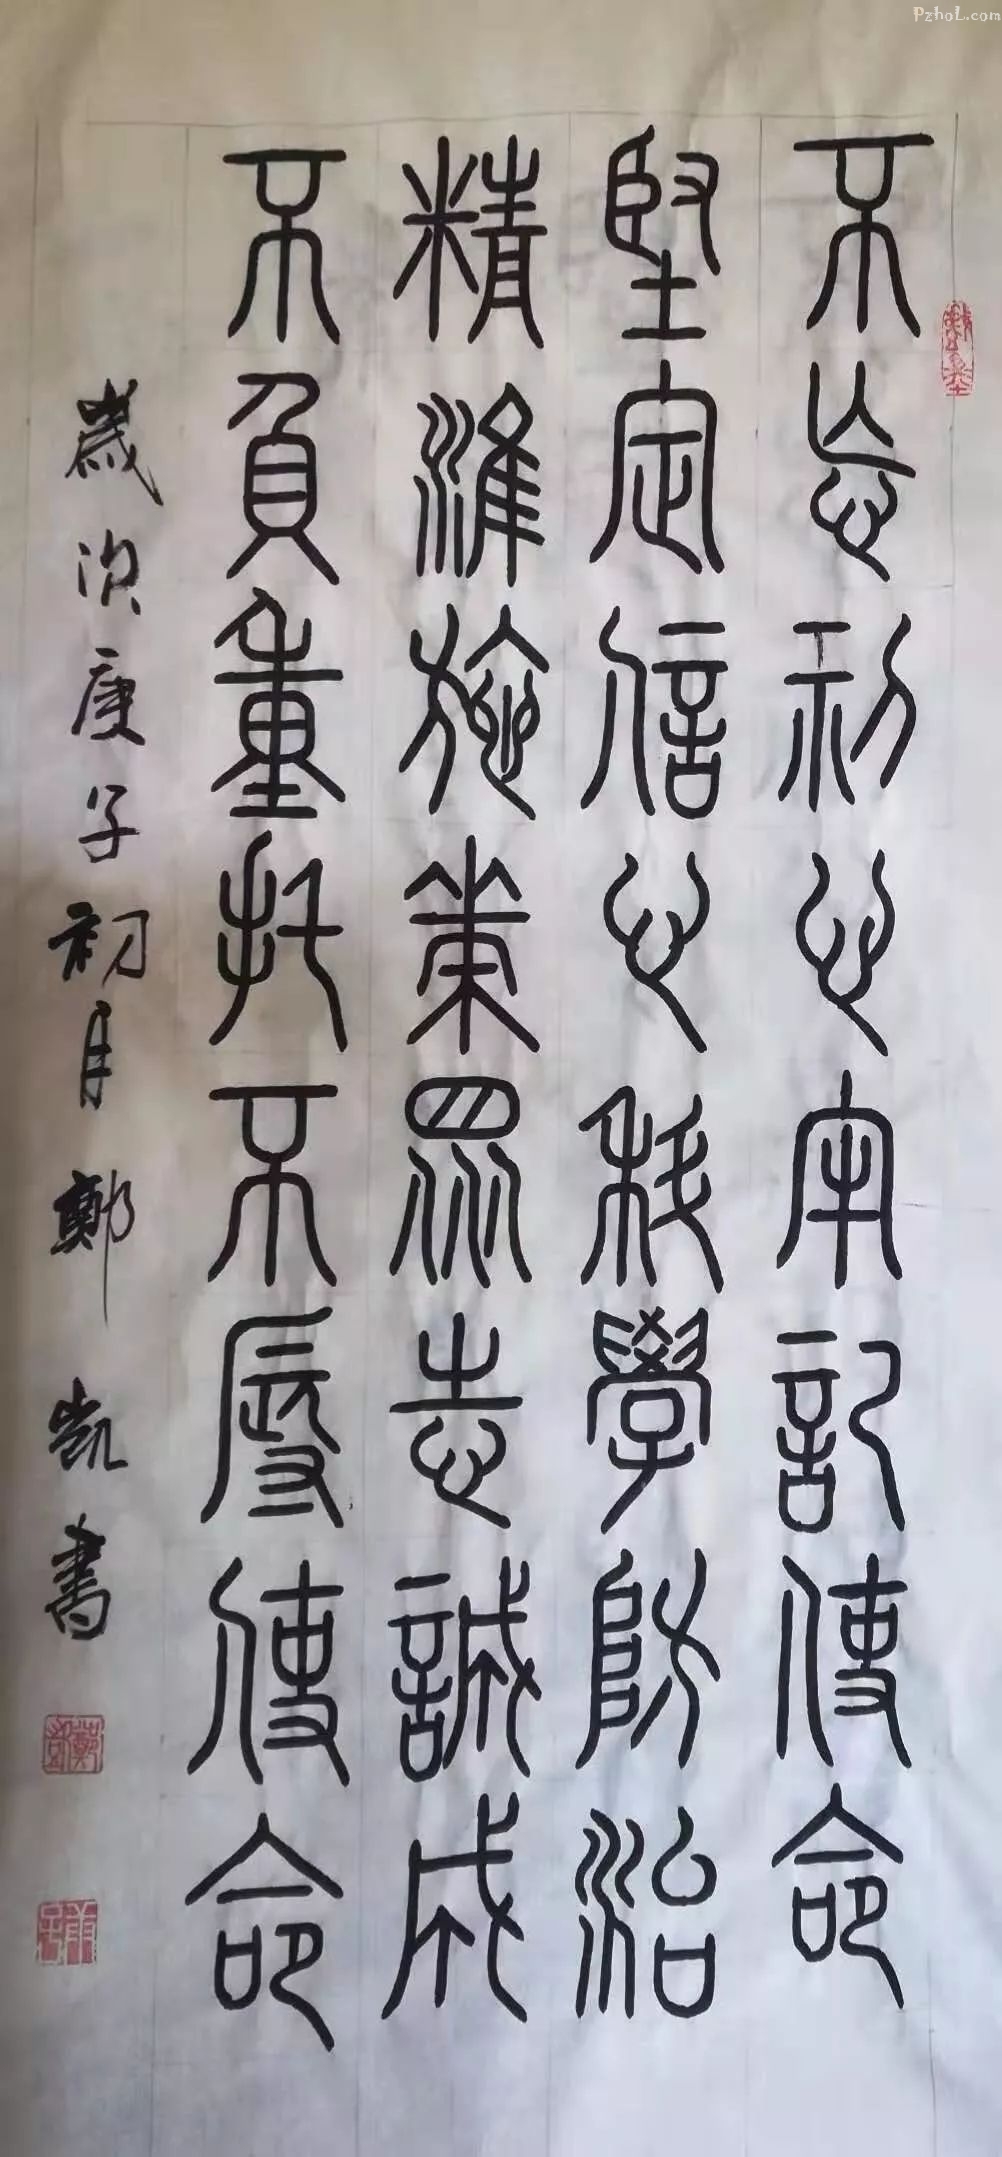 PzhoL.com
不忘初心牢記使命
堅定信心科學防治
精準施策眾志誠成
不負重托不辱使命
歲次庚子初月鄭凱書